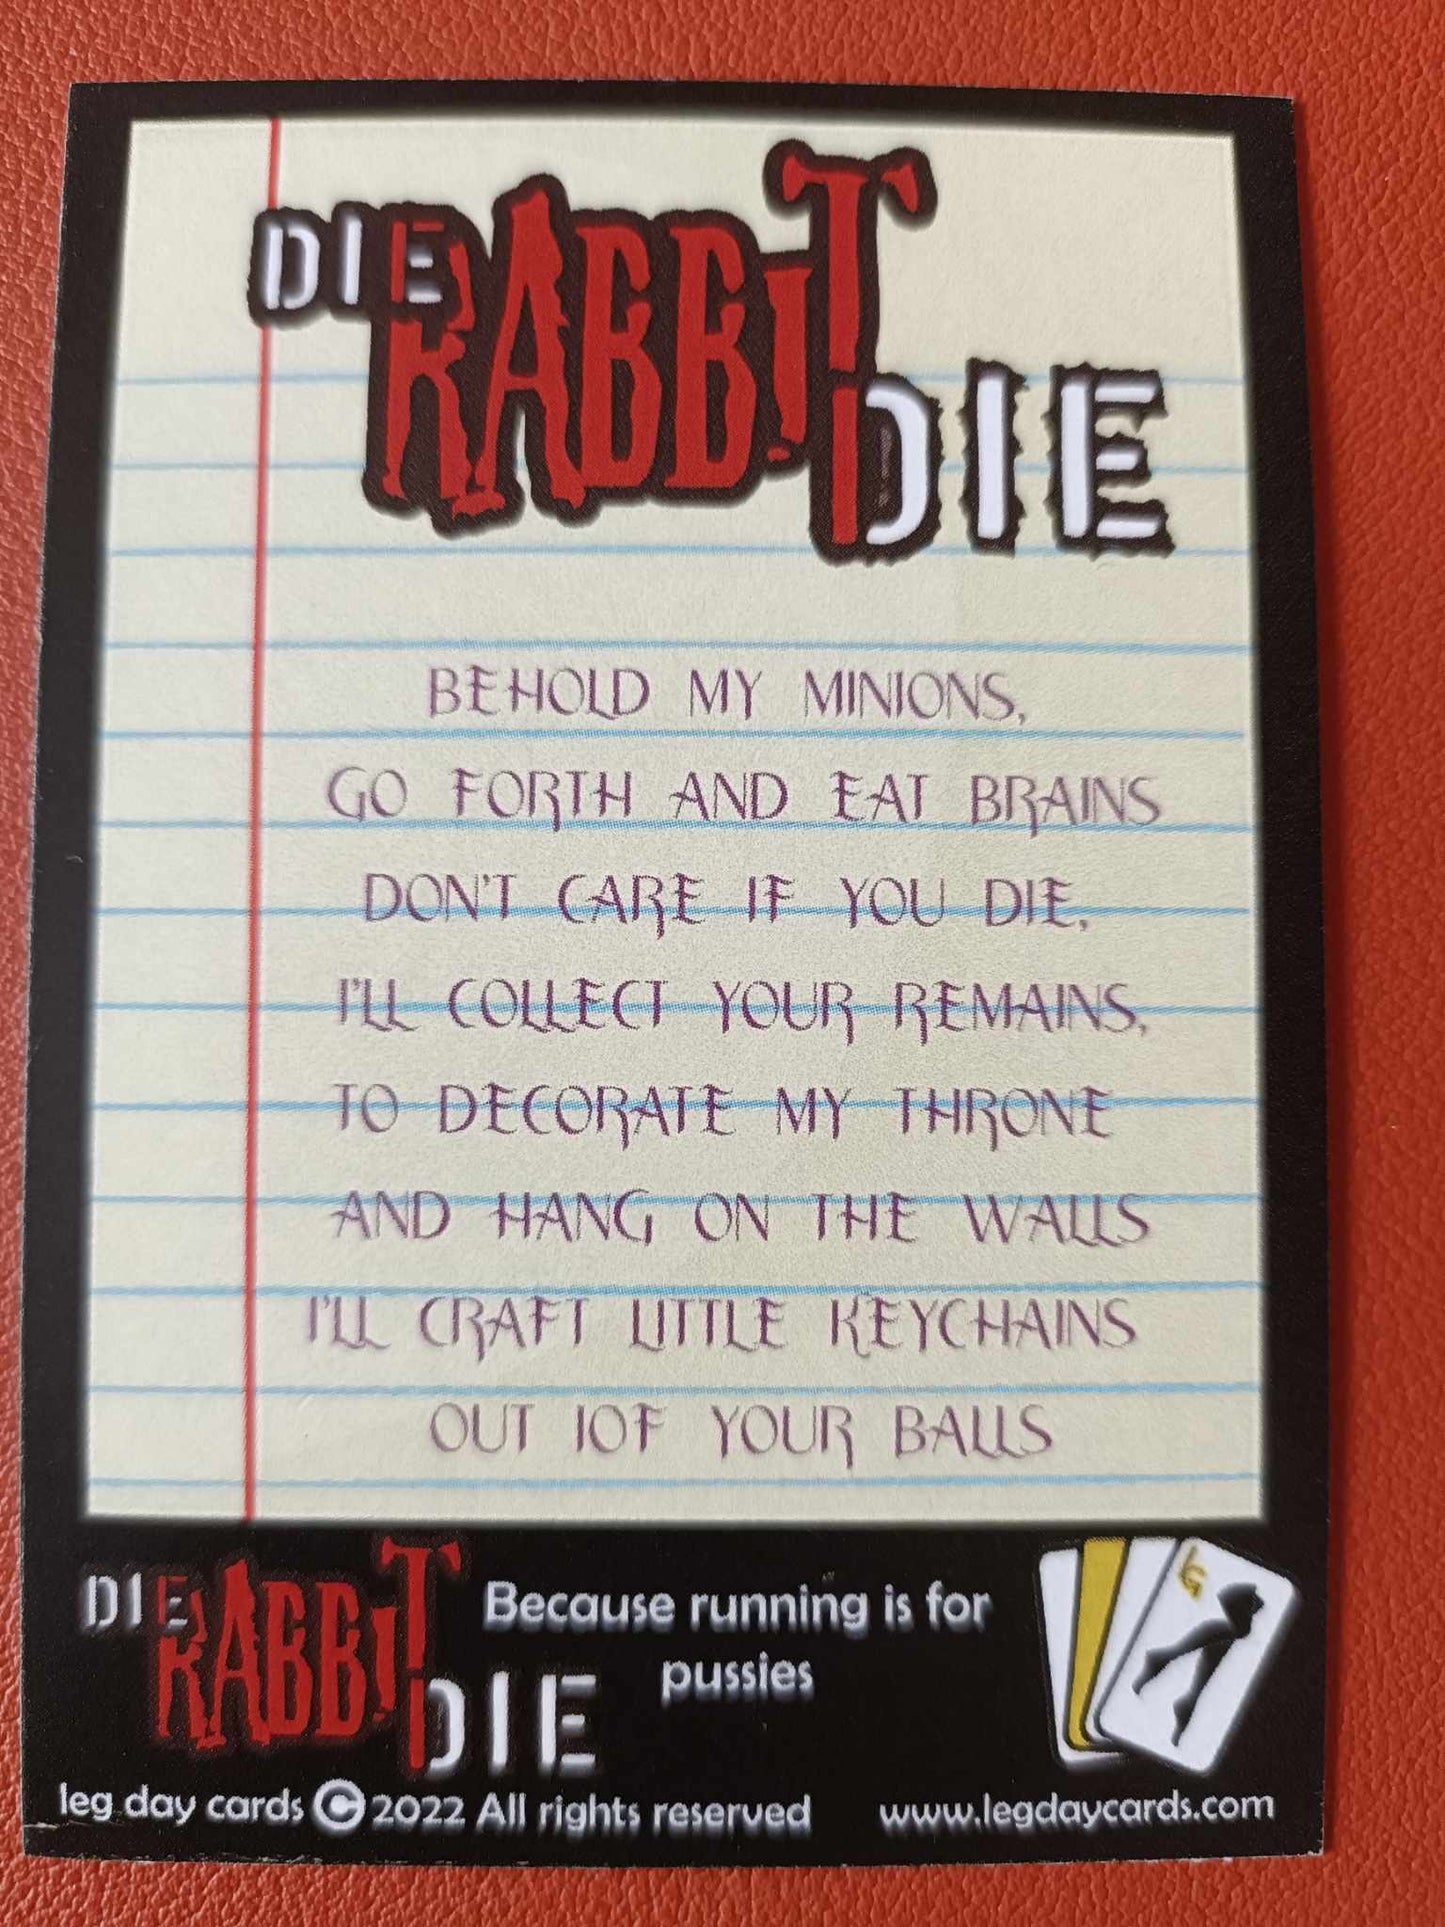 DIE
RABBIT
DIE
BEHOLD MY MINIONS,
GO FORTH AND EAT BRAINS
DON'T CARE IF YOU DIE,
I'LL COLLECT YOUR REMAINS,
TO DECORATE MY THRONE
AND HANG ON THE WALLS
I'LL CRAFT LITTLE KEYCHAINS
OUT IOF YOUR BALLS
DIE
RABBIT
DIE
Because running is for
pussies
LG
leg day cards © 2022 All rights reserved
www.legdaycards.com